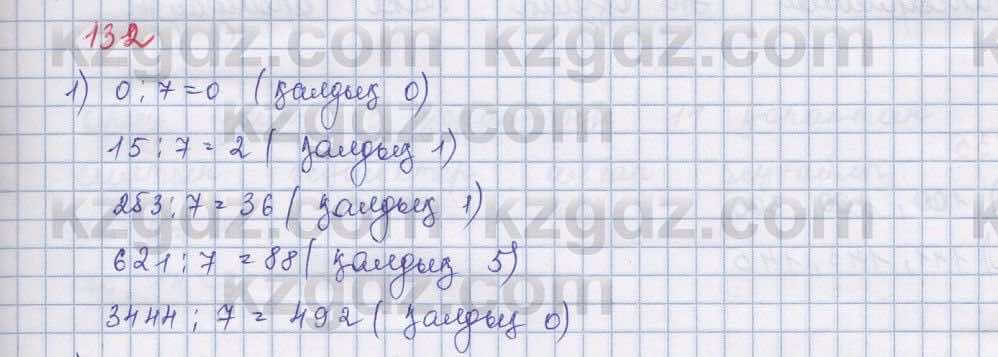 132
1) 0 : 7 = 0 (қалдық 0)
15 : 7 = 2 (қалдық 1)
253 : 7 = 36 (қалдық 1)
621 : 7 = 88 (қалдық 5)
3444 : 7 = 492 (қалдық 0)
kzgdz.com kzgdz.com
kzgdz.com
kzgdz.com kzgdz.com
kzgdz.com